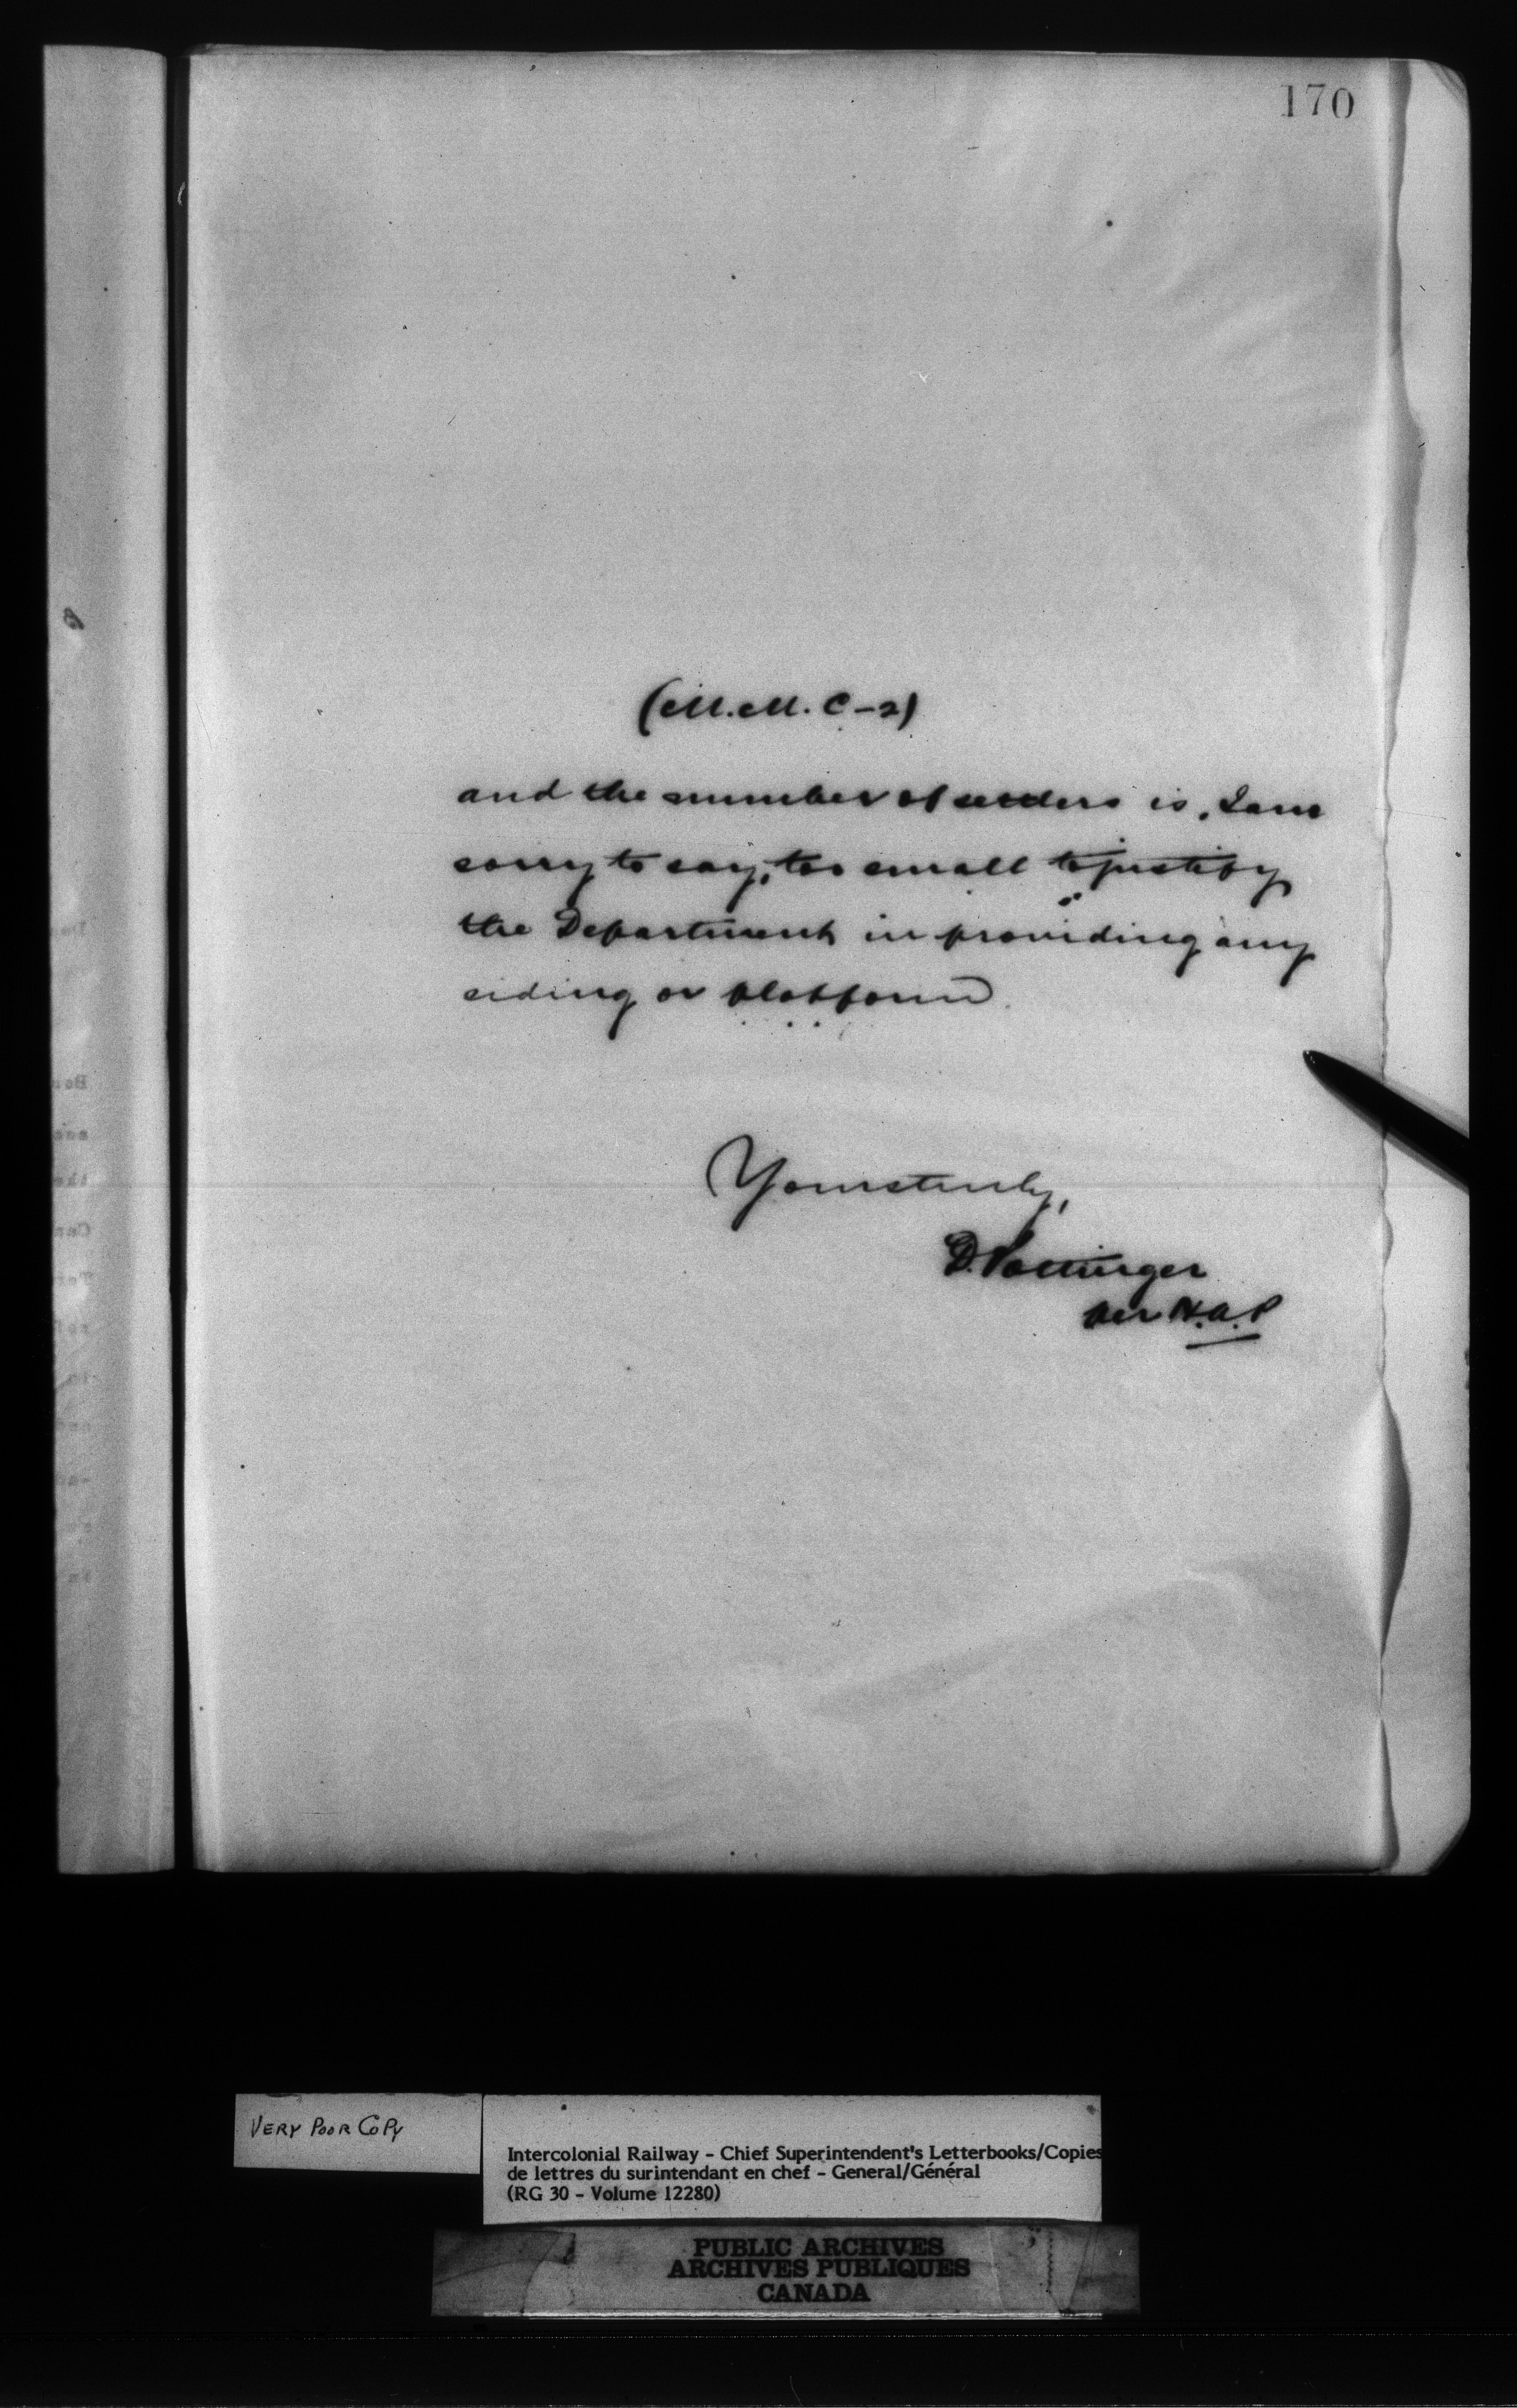 170
(M.M. C-2)
and the number of settlers is, I am
sorry to say, too small to justify
the Department in providing any
siding or platform.
Yours truly,
D. Pottinger
per H.A.P
VERY POOR COPY
Intercolonial Railway - Chief Superintendent's Letterbooks/Copies
de lettres du surintendant en chef - General/Général
(RG 30 - Volume 12280)
PUBLIC ARCHIVES
ARCHIVES PUBLIQUES
CANADA